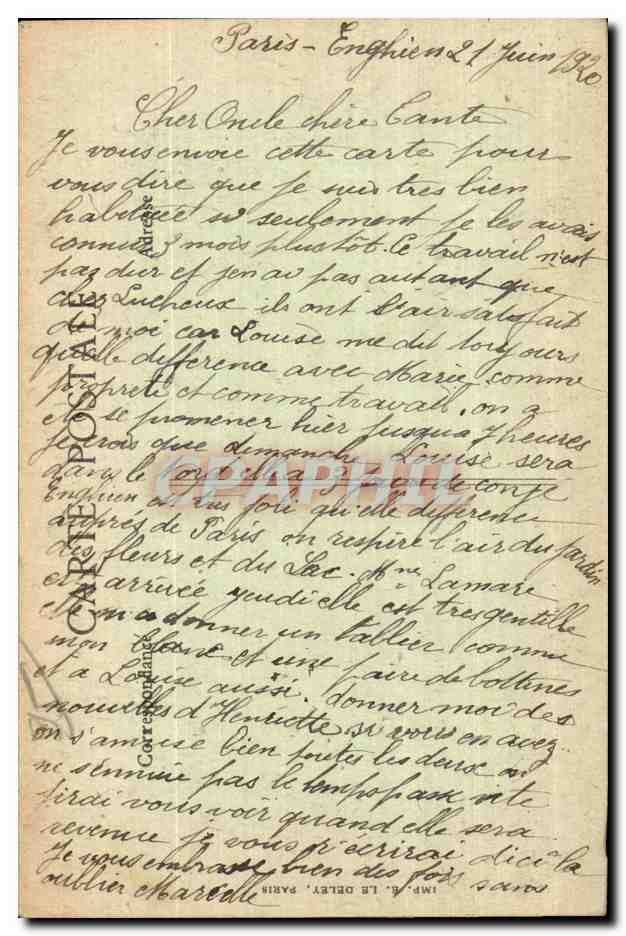 Paris - Enghien 21 Juin 1920
Cher Oncle chère Tante
Je vous envoie cette carte pour
vous dire que je suis tres bien
habituée si seulement je les avais
connus 3 mois plustôt. Ce travail n'est
paz dur et j'en ai pas autant que
chez Lucheux ils ont l'air satisfait
de moi car Louise me dit toujours
quelle difference avec Marie comme
propreté et comme travail. on a
été se promener hier jusqua 7 heures
je crois que dimanche Louise sera
dans le
Enghien est plus joli qu'elle difference
auprés de Paris on respire l'air du jardin
des fleurs et du Lac. Mme Lamare
est arrivée jeudi elle est tres gentille
elle m'a donner un tablier comme
mon blanc et une paire de bottines
et a Louise aussi. donner moi des
nouvelles d'Henriette si vous en avez
on s'amuse bien toutes les deux on
ne s'ennuie pas le temps passe vite
j'irai vous voir quand elle sera
revenue je vous récrirai d'ici la
Je vous embrasse bien des fois sans
oublier Marcelle
CARTE POSTALE
Correspondance
Adresse
IMP. E. LE DELEY, PARIS
CPAPHIL